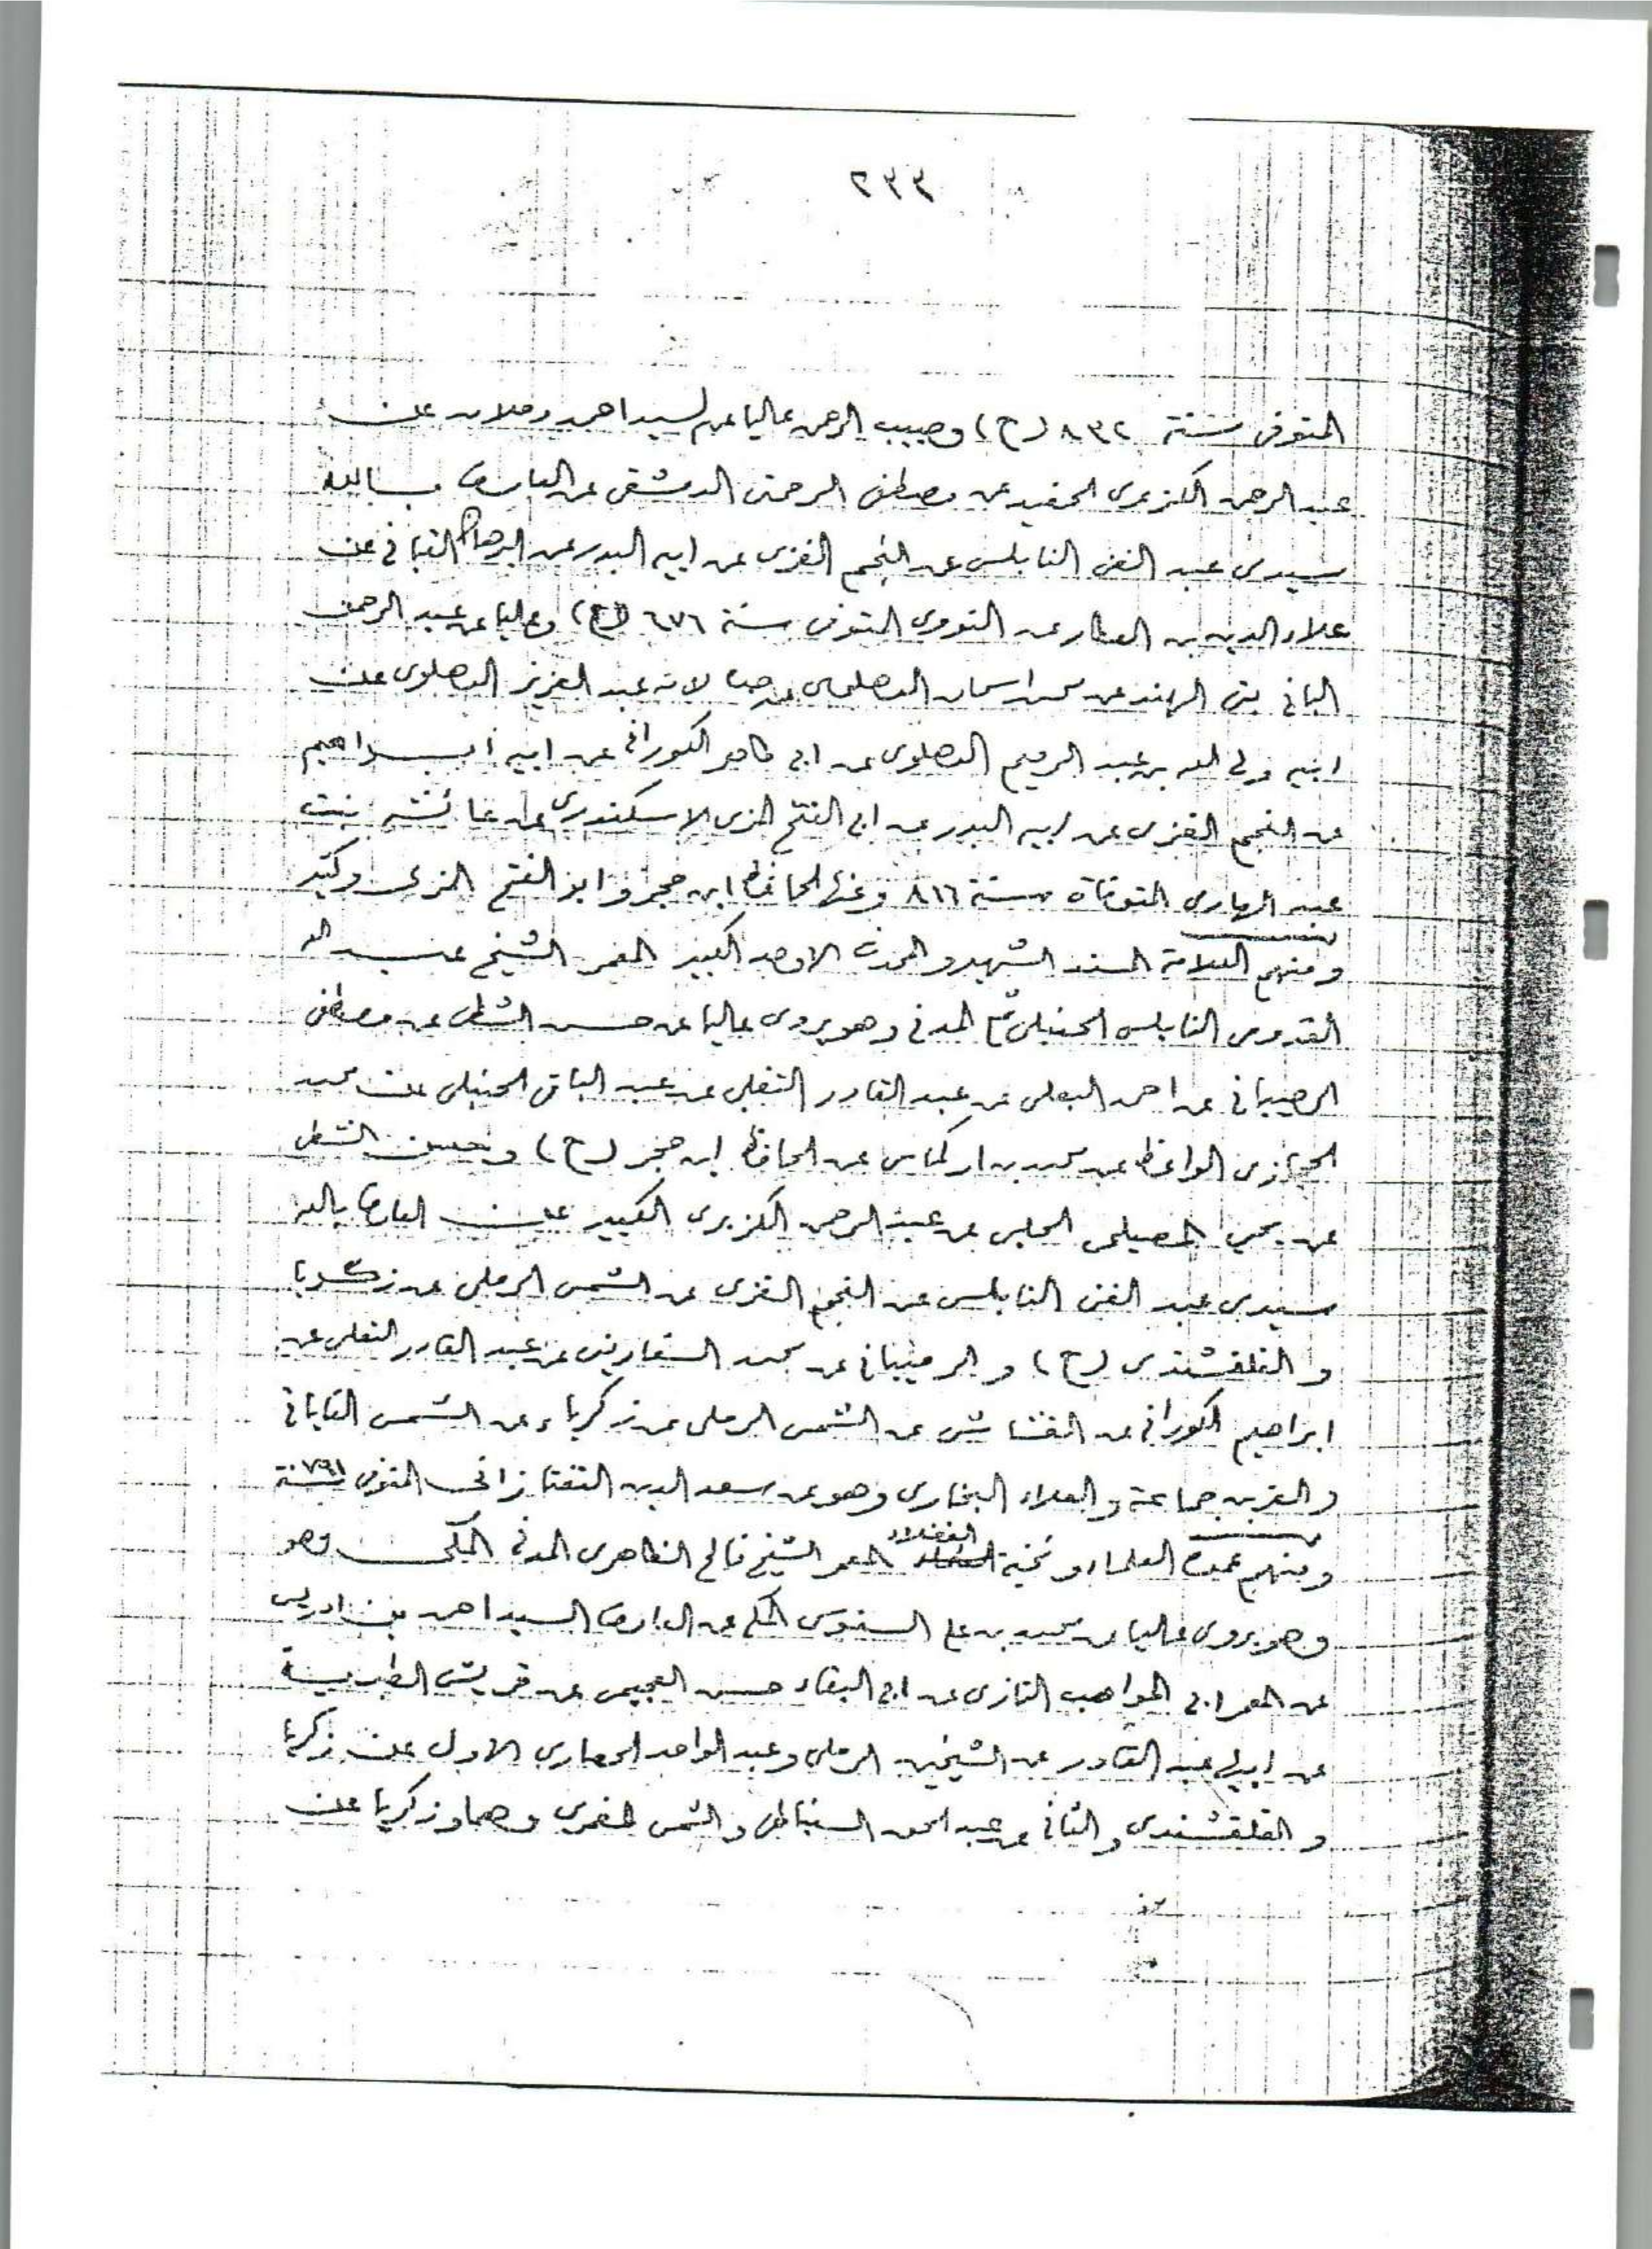 ٢٣٣
المتوفى سنة ٨٣٢ (ح) وحبيب الرحمن عاليا عن السيد احمد دحلان عن
عبد الرحمن الكزبرى الحفيد عن مصطفى الرحمتى الدمشقى عن العارف بالله
سيدى عبد الغنى النابلسى عن النجم الغزى عن ابيه البدر عن البرهان القبانى عن
علاء الدين بن العطار عن النووى المتوفى سنة ٦٧٦ (ح) وعاليا عن عبد الرحمن
البانى بتى الهند عن محمد اسحاق الدهلوى عن عبد العزيز الدهلوى عن
ابيه ولى الله بن عبد الرحيم الدهلوى عن ابى طاهر الكورانى عن ابيه ابراهيم
عن النجم الغزى عن ابيه البدر عن ابى الفتح المزى الاسكندرى عن عائشة بنت
عبد الهادى المتوفاة سنة ٨١٦ وعنها الحافظ ابن حجر وابو الفتح المزى وكتب
ومنهم العلامة المسند الشهير والمحدث الاوحد الكبير المعمر الشيخ عبد الله
القدومى النابلسى الحنبلى ثم المدنى وهو يروى عاليا عن حسن الشطى عن مصطفى
الرحيبانى عن احمد البعلى عن عبد القادر التغلبى عن عبد الباقى الحنبلى عن محمد
الحجازى الواعظ عن محمد بن اركماس عن الحافظ ابن حجر (ح) وحسن الشطى
عن يحيى المصيلحى الحلبى عن عبد الرحمن الكزبرى الكبير عن العارف بالله
سيدى عبد الغنى النابلسى عن النجم الغزى عن الشمس الرملى عن زكريا
والقلقشندى (ح) والرحيبانى عن محمد السفارينى عن عبد القادر التغلبى عن
ابراهيم الكورانى عن القشاشى عن الشمس الرملى عن زكرياء عن الشمس القاياتى
والعز بن جماعة والعلاء البخارى وهو عن سعد الدين التفتازانى المتوفى سنة ٧٩١
ومنهم عمدة العلماء ونخبة الفضلاء المعمر الشيخ فالح الظاهرى المدنى المكى وهو
وهو يروى عاليا عن محمد بن على السنوسى المكى عن العارف السيد احمد بن ادريس
عن المعمر ابى المواهب التازى عن ابى البقاء حسن العجيمى عن قريش الطبرية
عن ابيها عبد القادر عن الشيخين الرملى وعبد الواحد الحصارى الاول عن زكريا
والقلقشندى والثانى عن عبد الحق السنباطى والشمس الغمرى وهما وزكريا عن